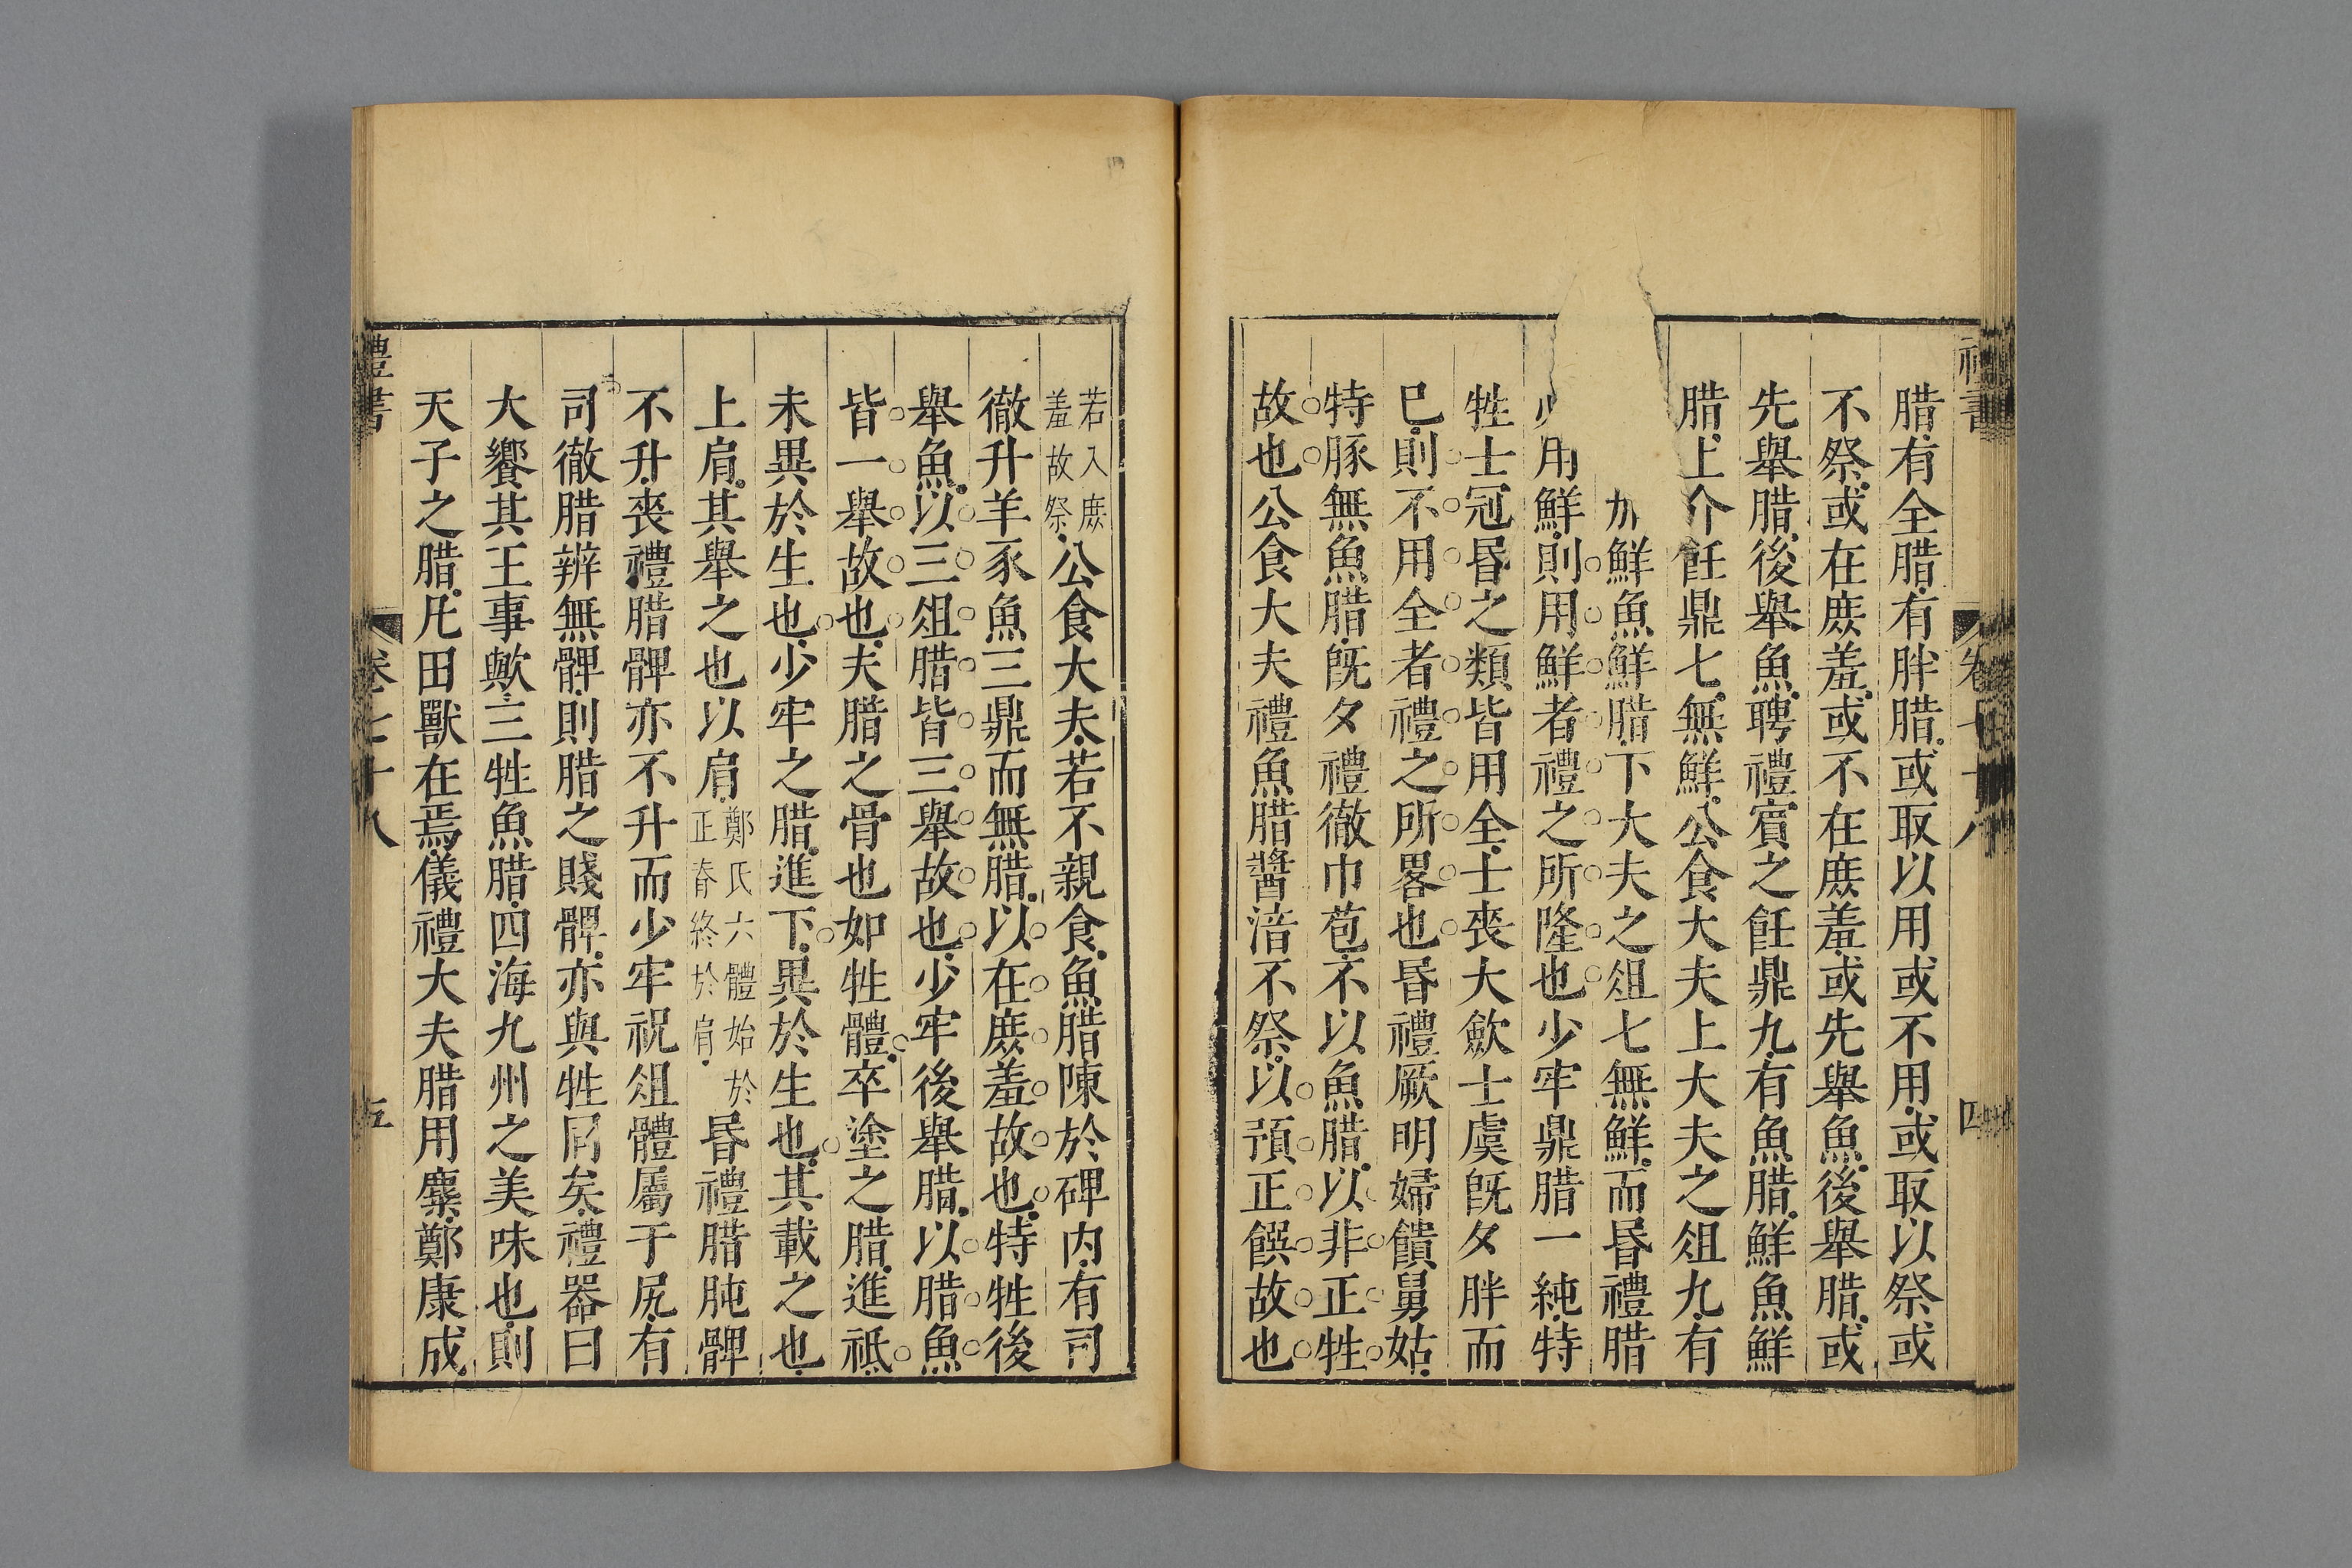 禮書
卷七十八
四
腊有全腊有胖腊或取以用或不用或取以祭或
不祭或在庶羞或不在庶羞或先舉魚後舉腊或
先舉腊後舉魚聘禮賓之飪鼎九有魚腊鮮魚鮮
腊上介飪鼎七無鮮公食大夫上大夫之俎九有
加鮮魚鮮腊下大夫之俎七無鮮而昬禮腊
用鮮則用鮮者禮之所隆也少牢鼎腊一純特
牲士冠昬之類皆用全士喪大斂士虞旣夕胖而
已則不用全者禮之所畧也昬禮厥明婦饋舅姑
特豚無魚腊旣夕禮徹巾苞不以魚腊以非正牲
故也公食大夫禮魚腊醬湆不祭以預正饌故也
若入庶
羞故祭
公食大夫若不親食魚腊陳於碑内有司
徹升羊豕魚三鼎而無腊以在庶羞故也特牲後
舉魚以三俎腊皆三舉故也少牢後舉腊以腊魚
皆一舉故也夫腊之骨也如牲體卒塗之腊進祗
未異於生也少牢之腊進下異於生也其載之也
上肩其舉之也以肩
鄭氏六體始於
正脊終於肩
昬禮腊肫髀
不升喪禮腊髀亦不升而少牢祝俎體屬于尻有
司徹腊辨無髀則腊之賤髀亦與牲同矣禮器曰
大饗其王事歟三牲魚腊四海九州之美味也則
天子之腊凡田獸在焉儀禮大夫腊用麋鄭康成
禮書
卷七十八
五